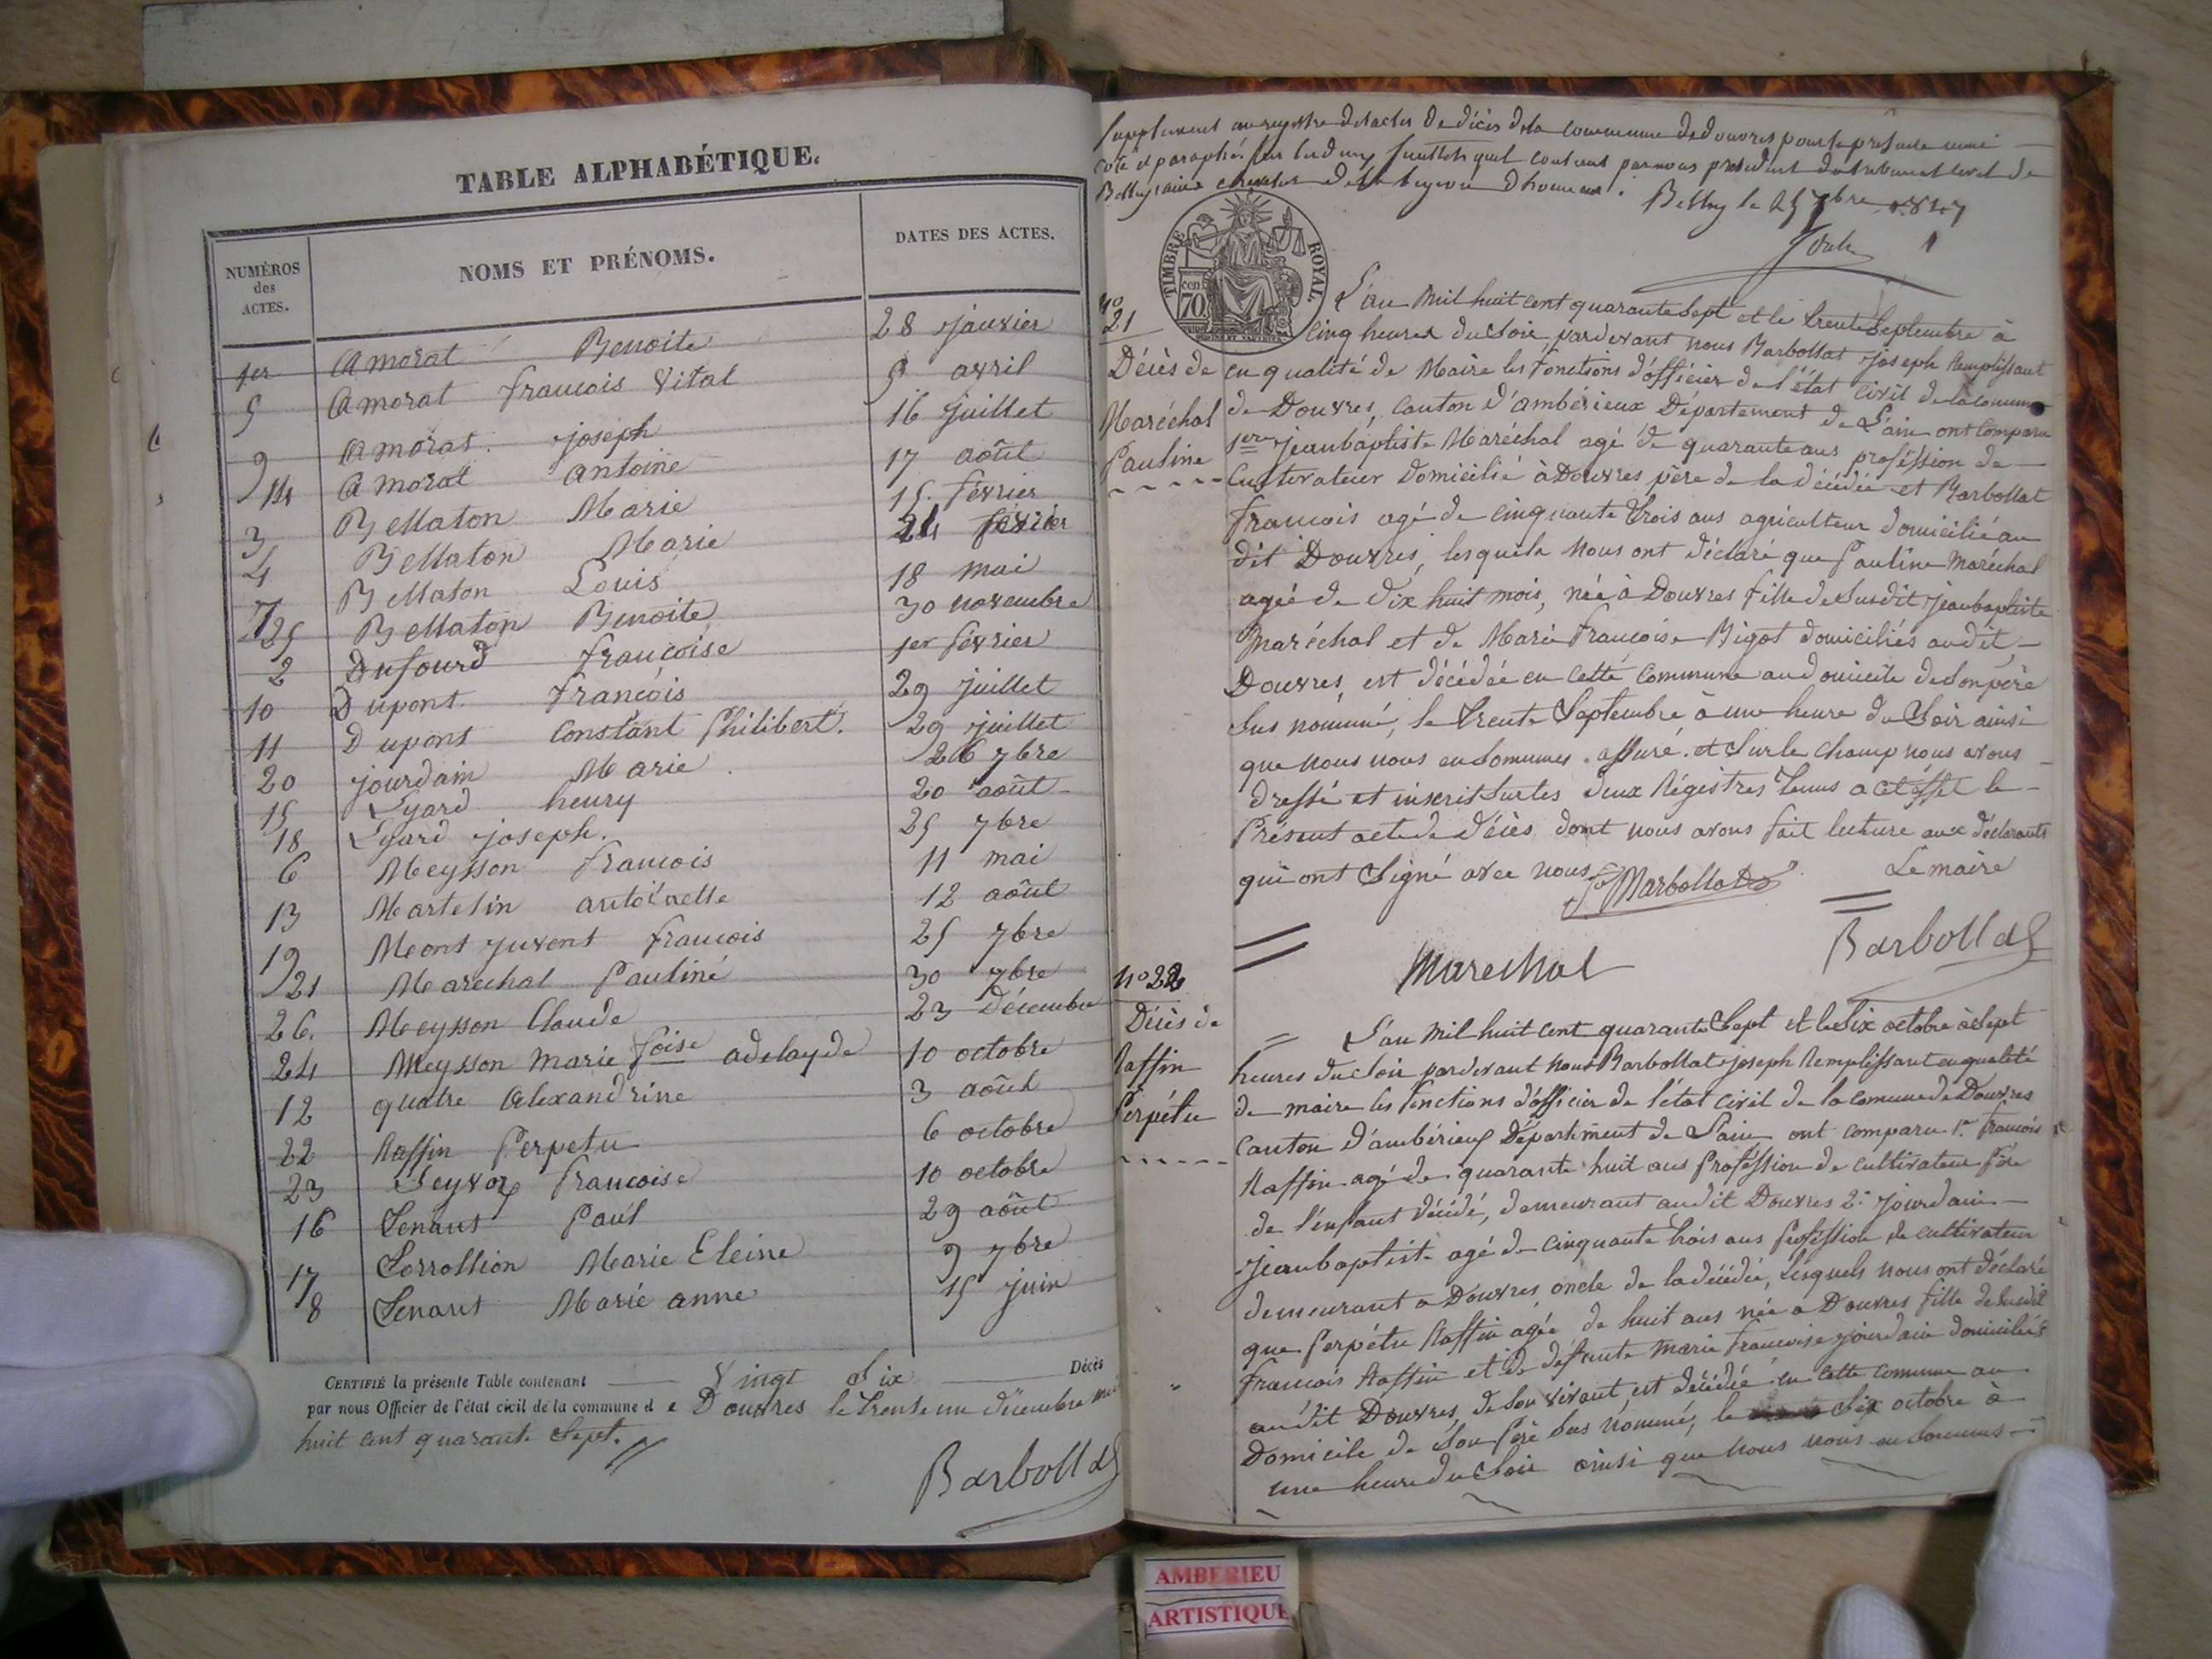 TABLE ALPHABÉTIQUE.
NUMÉROS des ACTES. NOMS ET PRÉNOMS. DATES DES ACTES.
1er Amorat Benoite 28 janvier
5 Amorat francois Vital 5 avril
9 Amorat joseph 16 juillet
14 Amorat antoine 17 août
3 Bellaton Marie 15 février
4 Bellaton Marie 24 février
7 Bellaton Louis 18 mai
25 Bellaton Benoite 30 novembre
2 Dufourd françoise 1er février
10 Dupont francois 29 juillet
11 Dupont Constant Philibert. 29 juillet
20 jourdain Marie 26 7bre
15 Lyard henry 20 août
18 Lyard joseph. 25 7bre
6 Meysson francois 11 mai
13 Martelin antoinette 12 août
19 Mont juvent francois 25 7bre
21 Marechal Pauline 30 7bre
26. Meysson Claude 23 décembre
24 Meysson Marie foise adelayde 10 octobre
12 quatre Alexandrine 3 août
22 Raffin Perpetu 6 octobre
23 francoise 10 octobre
16 Tenant Paul 29 août
17 Marie Eleine 9 7bre
8 Tenant Marie anne 15 juin
CERTIFIÉ la présente Table contenant Vingt Six Décès
par nous Officier de l'état civil de la commune de Douvres le trente un décembre mil
huit cent quarante Sept.
Barbollat
Supplement au registre des actes de décès de la commune de douvres pour la présente année
coté et paraphé par president du tribunal civil de
Belley chevalier de la legion d'honneur. Belley le 25 7bre 1847
TIMBRE ROYAL.
70 cen
No 21
Décès de
Maréchal
Pauline
L'an Mil huit cent quarante Sept et le trente Septembre à
Cinq heures du Soir, pardevant nous Barbollat joseph Remplissant
en qualité de Maire les fonctions d'officier de l'état civil de la commune
de Douvres, canton d'ambérieux Département de L'ain ont comparu
1er jeanbaptiste Maréchal agé de quarante ans profession de
Cultivateur Domicilié à Douvres père de la décédée et Barbollat
francois agé de cinquante trois ans agriculteur domicilié au
dit Douvres, lesquels Nous ont déclaré que Pauline Maréchal
agée de dix huit mois, née à Douvres fille de Susdit jeanbaptiste
Maréchal et de Marie françoise Bigot domiciliés audit
Douvres, est décédée en cette commune au domicile de Son père
Sus nommé, le trente Septembre à une heure du Soir ainsi
que nous nous en Sommes assuré. et Sur le champ nous avons
dressé et inscrit Sur les deux Régistres tenus a cet effet le
Présent acte de décès dont nous avons fait lecture aux déclarants
qui ont Signé avec nous. Barbollat Le maire
Marechal Barbollat
No 22
Décès de
Raffin
Perpétu
L'an Mil huit cent quarante Sept et le Six octobre à Sept
heures du Soir pardevant nous Barbollat joseph Remplissant en qualité
de maire les fonctions d'officier de l'état civil de la comune de Douvres
Canton d'ambérieux Département de L'ain ont comparu 1er francois
Raffin agé de quarante huit ans Profession de cultivateur Père
de l'enfant décédé, demeurant audit Douvres 2e jourdain
jeanbaptiste agé de cinquante trois ans profession de cultivateur
demeurant a Douvres oncle de la décédée, Lesquels nous ont déclaré
que Perpétu Raffin agée de huit ans née a Douvres fille de Susdit
francois Raffin et de défunte Marie francoise jourdain domiciliés
audit Douvres, de Son vivant, est décédée en cette commune au
Domicile de Son Père Sus nommé, le Six octobre à
une heure du Soir ainsi que nous nous en Sommes
AMBERIEU
ARTISTIQUE